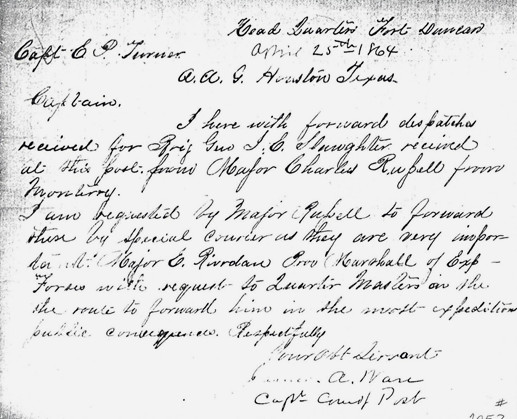 Head Quarters Fort Duncan
April 25th 1864
Capt E P. Turner
A. A. G. Houston Texas
Captain.
I here with forward dispatches
received for Brig Gen J. E. Slaughter received
at this post from Major Charles Russell from
Monterry.
I am requested by Major Russell to forward
them by special courier as they are very impor-
tant. Major E. Riordan Prov Marshall of Exp-
Forses with request to Quarter Masters on the
the route to forward him in the most expeditious
public conveyence. Respectfully
Your Obt Servant
A. Ware
Capt Comd Post
#